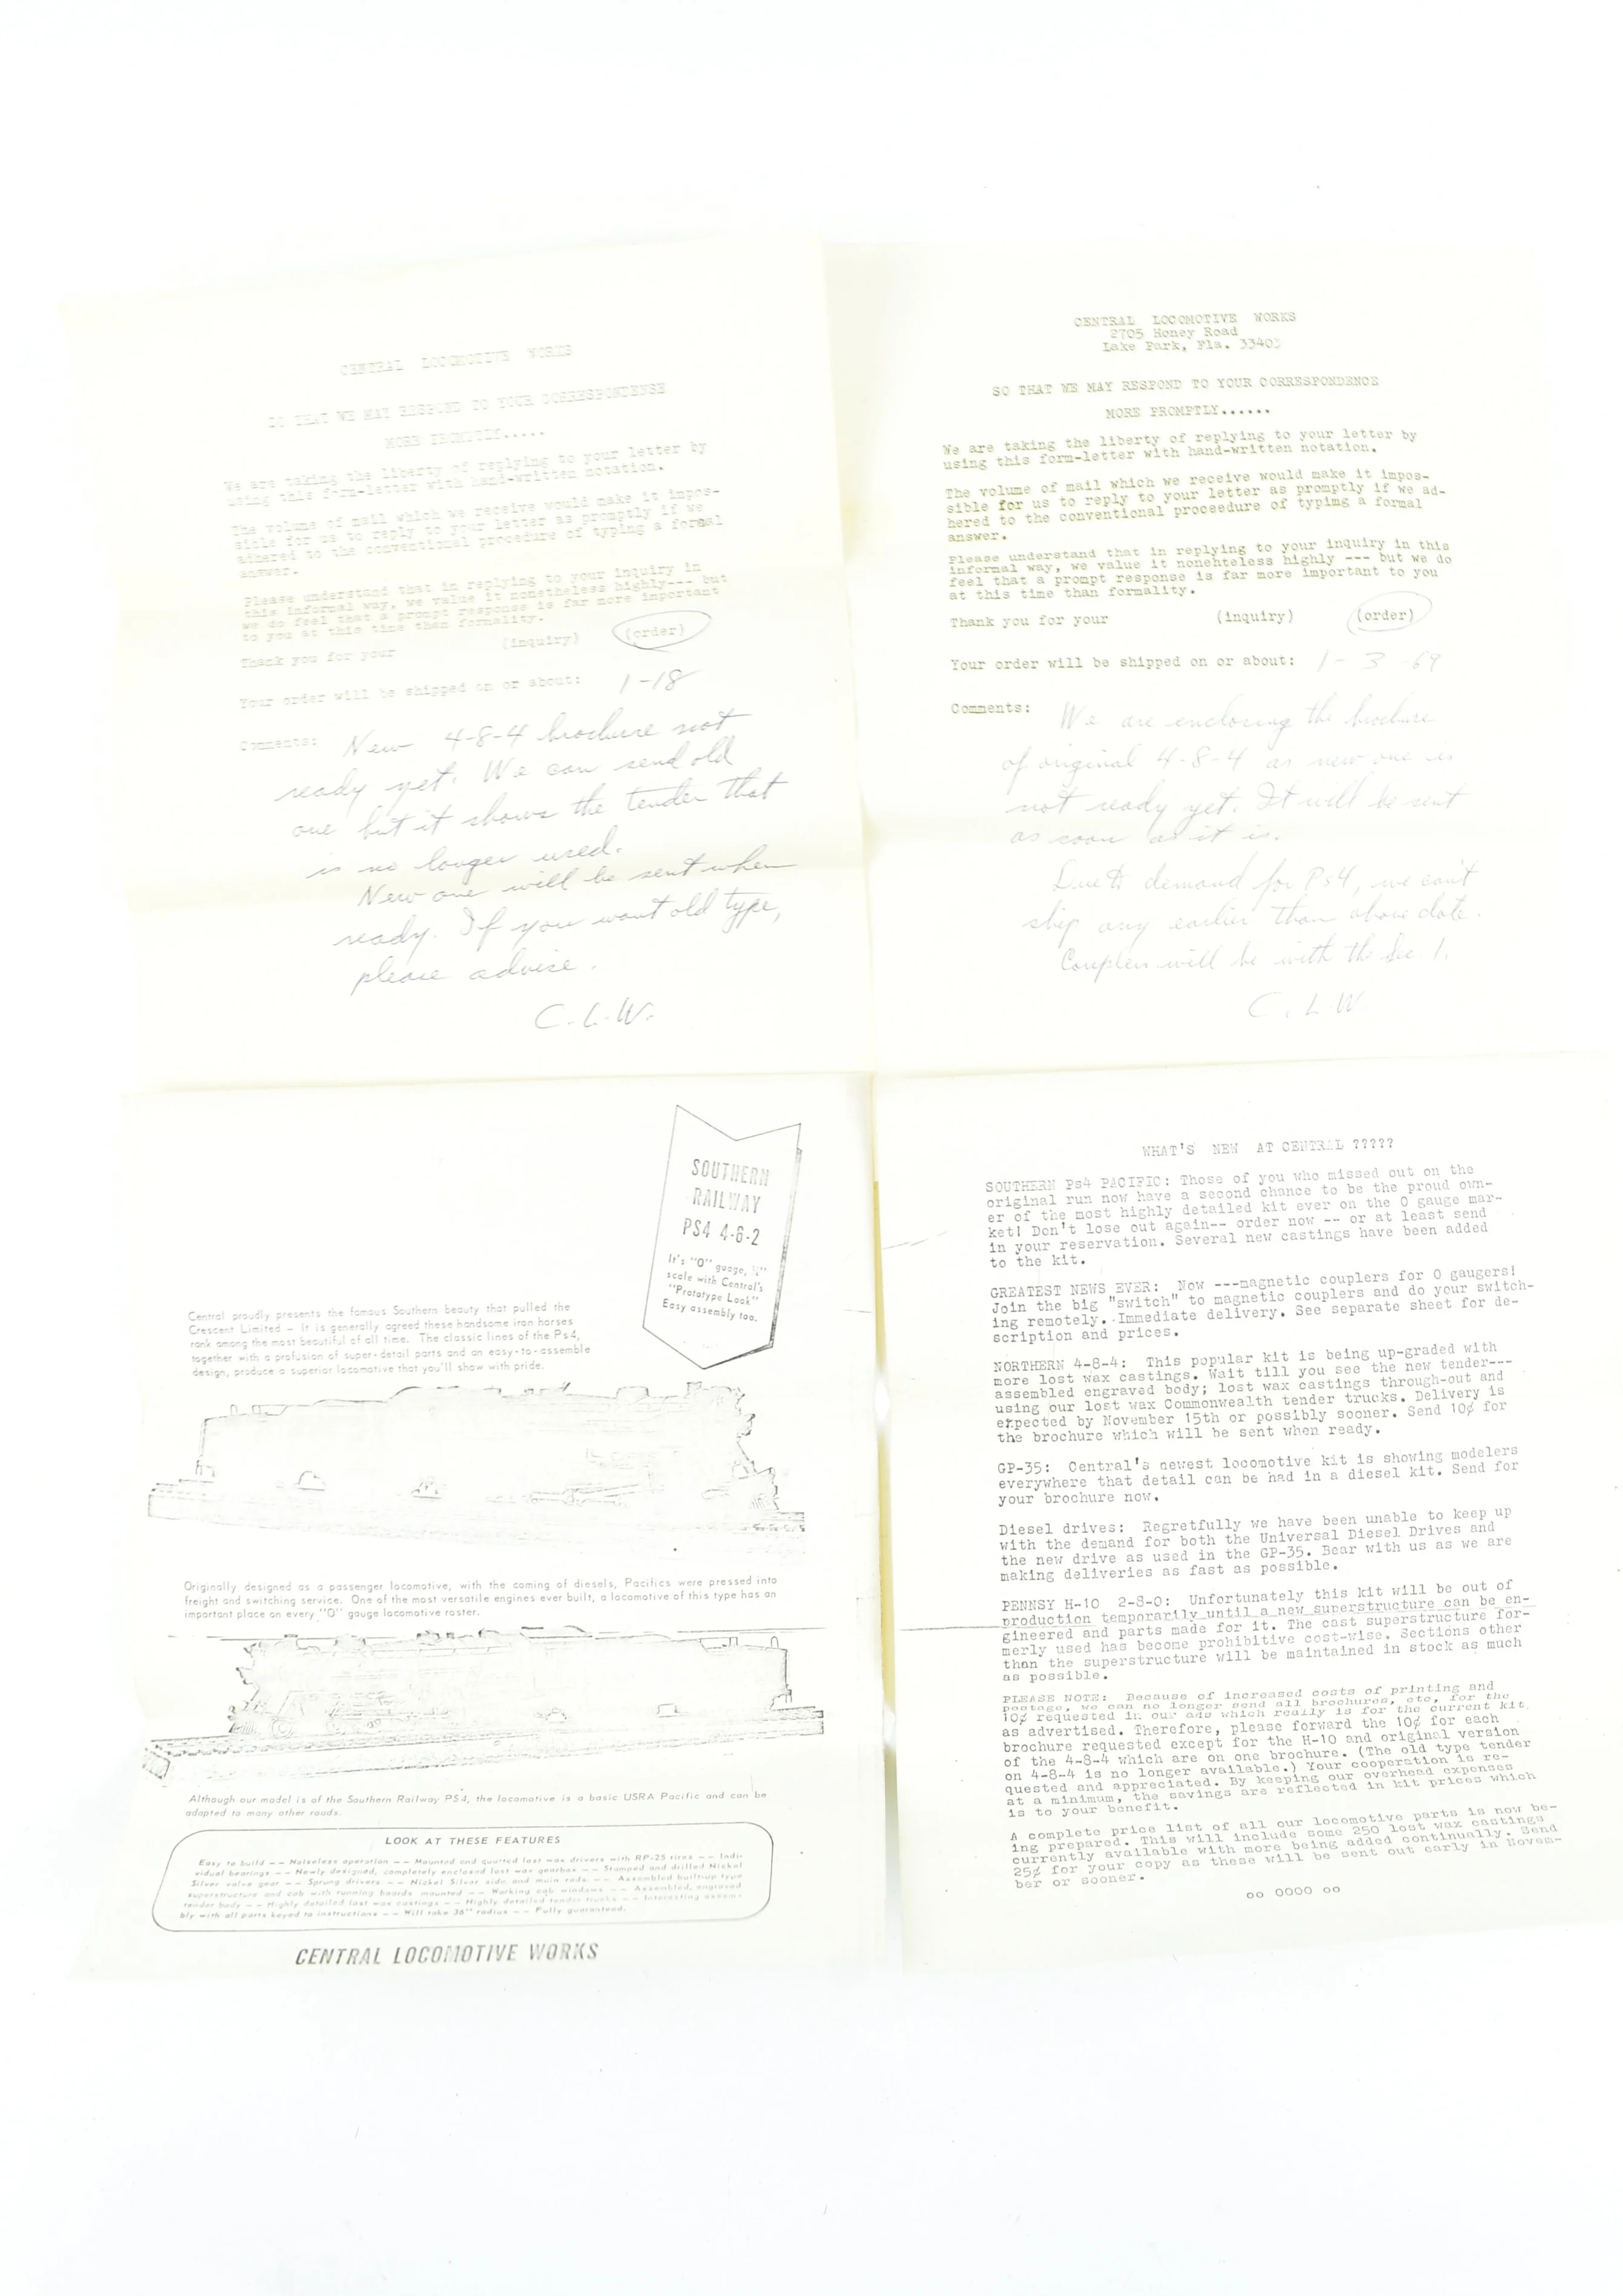 CENTRAL LOCOMOTIVE WORKS
SO THAT WE MAY RESPOND TO YOUR CORRESPONDENSE
MORE PROMPTLY.....
We are taking the liberty of replying to your letter by
using this form-letter with hand-written notation.
The volume of mail which we receive would make it impos-
sible for us to reply to your letter as promptly if we
adhered to the conventional procedure of typing a formal
answer.
Please understand that in replying to your inquiry in
this informal way, we value it nonetheless highly--- but
we do feel that a prompt response is far more important
to you at this time than formality.
Thank you for your (inquiry) (order)
Your order will be shipped on or about: 1-18
Comments: New 4-8-4 brochure not
ready yet. We can send old
one but it shows the tender that
is no longer used.
New one will be sent when
ready. If you want old type,
please advise.
C.L.W.
CENTRAL LOCOMOTIVE WORKS
2705 Honey Road
Lake Park, Fla. 33403
SO THAT WE MAY RESPOND TO YOUR CORRESPONDENCE
MORE PROMPTLY......
We are taking the liberty of replying to your letter by
using this form-letter with hand-written notation.
The volume of mail which we receive would make it impos-
sible for us to reply to your letter as promptly if we ad-
hered to the conventional proceedure of typimg a formal
answer.
Please understand that in replying to your inquiry in this
informal way, we value it nonehteless highly --- but we do
feel that a prompt response is far more important to you
at this time than formality.
Thank you for your (inquiry) (order)
Your order will be shipped on or about: 1-3-69
Comments: We are enclosing the brochure
of original 4-8-4 as new one is
not ready yet. It will be sent
as soon as it is.
Due to demand for Ps4, we can't
ship any earlier than above date.
Couplers will be with the Sec. 1.
C.L.W.
SOUTHERN
RAILWAY
PS4 4-6-2
It's "O" guage, ¼"
scale with Central's
"Prototype Look"
Easy assembly too.
Central proudly presents the famous Southern beauty that pulled the
Crescent Limited – It is generally agreed these handsome iron horses
rank among the most beautiful of all time. The classic lines of the Ps4,
together with a profusion of super-detail parts and an easy-to-assemble
design, produce a superior locomotive that you'll show with pride.
Originally designed as a passenger locomotive, with the coming of diesels, Pacifics were pressed into
freight and switching service. One of the most versatile engines ever built, a locomotive of this type has an
important place on every "O" gauge locomotive roster.
Although our model is of the Southern Railway PS4, the locomotive is a basic USRA Pacific and can be
adapted to many other roads.
LOOK AT THESE FEATURES
Easy to build -- Noiseless operation -- Mounted and quarted lost wax drivers with RP-25 tires -- Indi-
vidual bearings -- Newly designed, completely enclosed lost wax gearbox -- Stamped and drilled Nickel
Silver valve gear -- Sprung drivers -- Nickel Silver side and main rods -- Assembled built-up type
superstructure and cab with running boards mounted -- Working cab windows -- Assembled, engraved
tender body -- Highly detailed lost wax castings -- Highly detailed tender trucks -- Interesting assem-
bly with all parts keyed to instructions -- Will take 36" radius -- Fully guaranteed.
CENTRAL LOCOMOTIVE WORKS
WHAT'S NEW AT CENTRAL ?????
SOUTHERN Ps4 PACIFIC: Those of you who missed out on the
original run now have a second chance to be the proud own-
er of the most highly detailed kit ever on the O gauge mar-
ket! Don't lose out again-- order now -- or at least send
in your reservation. Several new castings have been added
to the kit.
GREATEST NEWS EVER: Now ---magnetic couplers for O gaugers!
Join the big "switch" to magnetic couplers and do your switch-
ing remotely. Immediate delivery. See separate sheet for de-
scription and prices.
NORTHERN 4-8-4: This popular kit is being up-graded with
more lost wax castings. Wait till you see the new tender---
assembled engraved body; lost wax castings through-out and
using our lost wax Commonwealth tender trucks. Delivery is
expected by November 15th or possibly sooner. Send 10¢ for
the brochure which will be sent when ready.
GP-35: Central's newest locomotive kit is showing modelers
everywhere that detail can be had in a diesel kit. Send for
your brochure now.
Diesel drives: Regretfully we have been unable to keep up
with the demand for both the Universal Diesel Drives and
the new drive as used in the GP-35. Bear with us as we are
making deliveries as fast as possible.
PENNSY H-10 2-8-0: Unfortunately this kit will be out of
production temporarily until a new superstructure can be en-
gineered and parts made for it. The cast superstructure for-
merly used has become prohibitive cost-wise. Sections other
than the superstructure will be maintained in stock as much
as possible.
PLEASE NOTE: Because of increased costs of printing and
postage, we can no longer send all brochures, etc, for the
10¢ requested in our ads which really is for the current kit
as advertised. Therefore, please forward the 10¢ for each
brochure requested except for the H-10 and original version
of the 4-8-4 which are on one brochure. (The old type tender
on 4-8-4 is no longer available.) Your cooperation is re-
quested and appreciated. By keeping our overhead expenses
at a minimum, the savings are reflected in kit prices which
is to your benefit.
A complete price list of all our locomotive parts is now be-
ing prepared. This will include some 250 lost wax castings
currently available with more being added continually. Send
25¢ for your copy as these will be sent out early in Novem-
ber or sooner.
oo 0000 oo